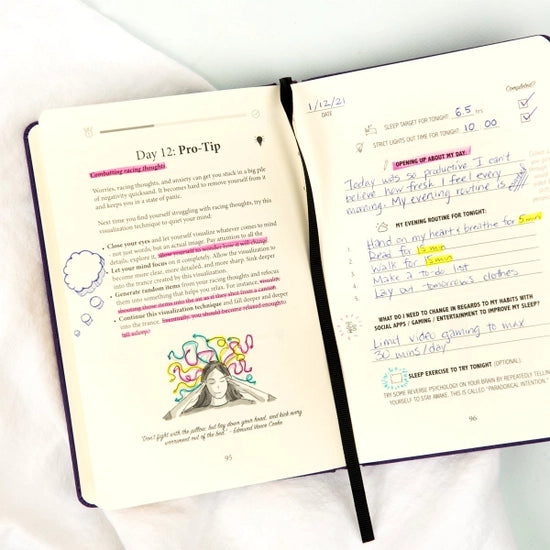 Day 12: Pro-Tip
Combatting racing thoughts.
Worries, racing thoughts, and anxiety can get you stuck in a big pile
of negativity quicksand. It becomes hard to remove yourself from it
and keeps you in a state of panic.
Next time you find yourself struggling with racing thoughts, try this
visualization technique to quiet your mind:
• Close your eyes and let yourself visualize whatever comes to mind
- not just words, but an actual image. Pay attention to all the
details, explore it, allow yourself to wonder how it will change.
• Let your mind focus on it completely. Allow the visualization to
become more clear, more detailed, and more sharp. Sink deeper
into the trance created by this visualization.
• Generate random items from your racing thoughts and refocus
them into something that helps you relax. For instance, visualize
shooting those items into the air as if they shot from a cannon.
• Continue this visualization technique and fall deeper and deeper
into the trance. Eventually, you should become relaxed enough to
fall asleep!
"Don't fight with the pillow, but lay down your head, and kick every
worriment out of the bed." - Edmund Vance Cooke
95
Completed?
1/12/21
DATE
SLEEP TARGET FOR TONIGHT: 6.5 hrs
STRICT LIGHTS OUT TIME FOR TONIGHT: 10 00
OPENING UP ABOUT MY DAY:
Today was so productive I can't
believe how fresh I feel every
morning. My evening routine is
MY EVENING ROUTINE FOR TONIGHT:
1. Hand on my heart & breathe for 5 min
2. Read for 15 min
3. Walk for 15 min
4. Make a to do list
5. Lay out tomorrow's clothes
WHAT DO I NEED TO CHANGE IN REGARDS TO MY HABITS WITH
SOCIAL APPS / GAMING / ENTERTAINMENT TO IMPROVE MY SLEEP?
Limit video gaming to max
30 mins/day
SLEEP EXERCISE TO TRY TONIGHT (OPTIONAL):
TRY SOME REVERSE PSYCHOLOGY ON YOUR BRAIN BY REPEATEDLY TELLING
YOURSELF TO STAY AWAKE. THIS IS CALLED "PARADOXICAL INTENTION."
96